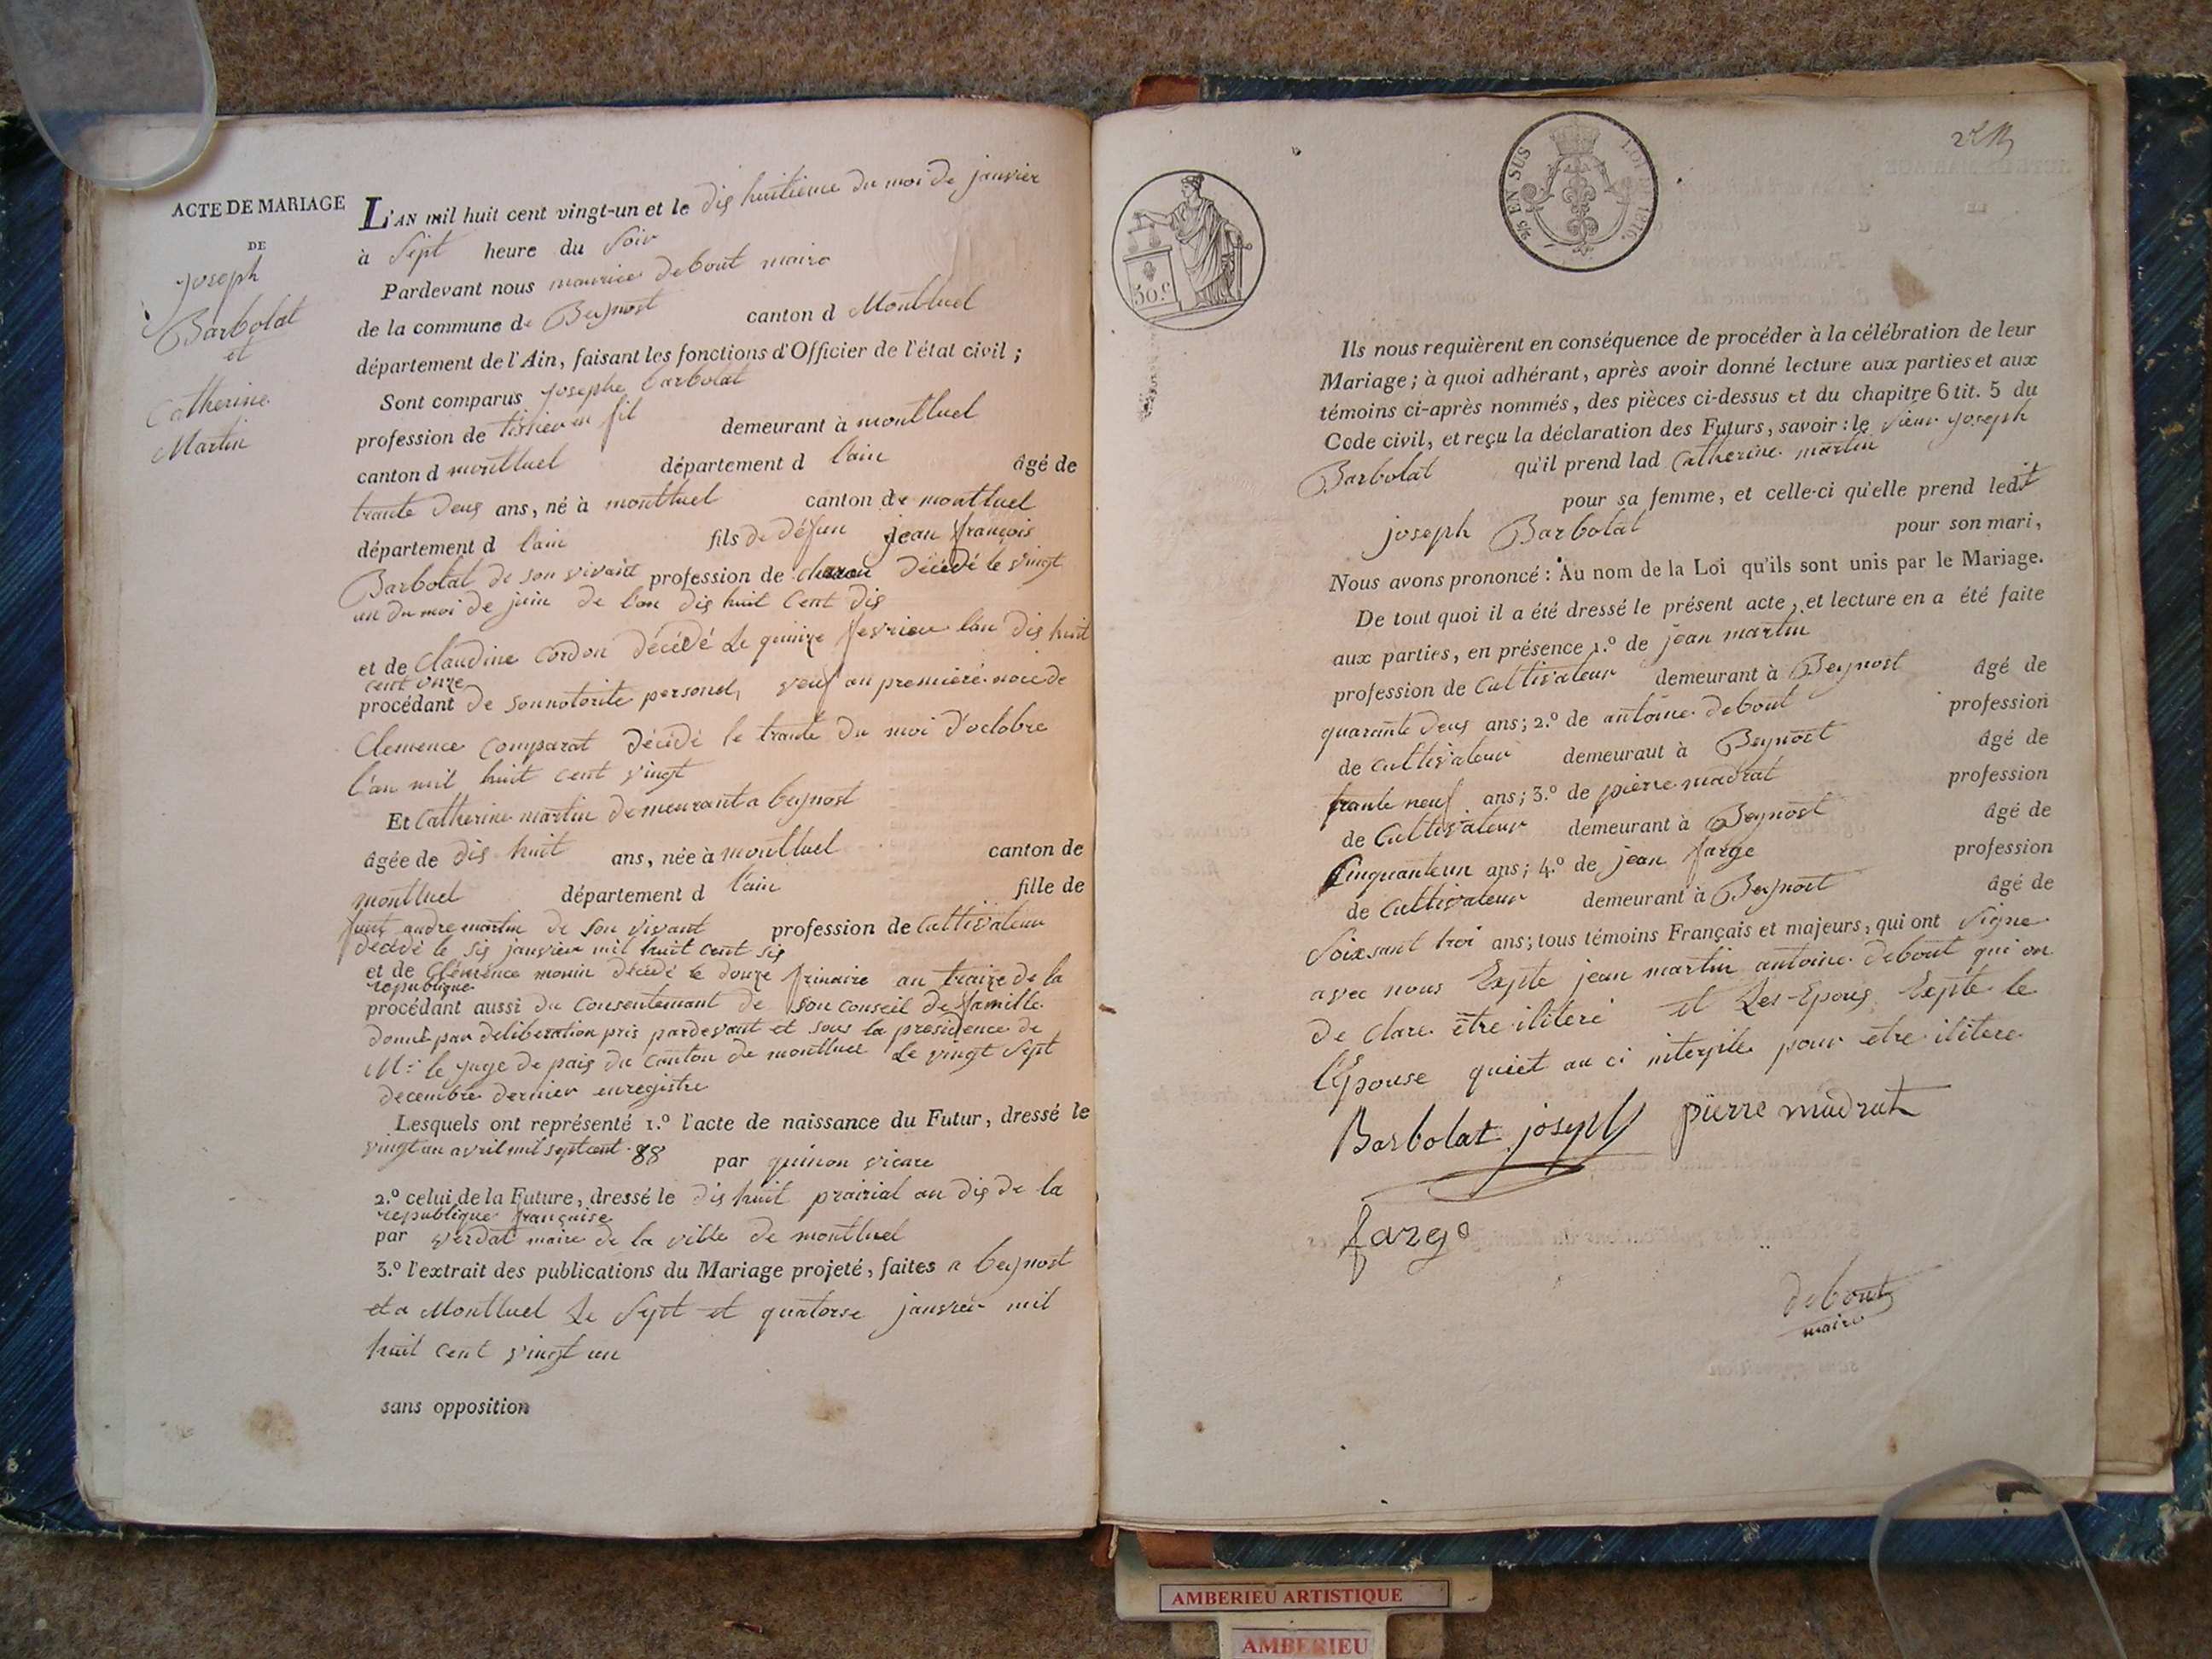 ACTE DE MARIAGE
DE
Joseph
Barbolat
et
Catherine
Martin
L'AN mil huit cent vingt-un et le dis huitieme du moi de janvier
à Sept heure du Soir
Pardevant nous maurice debout maire
de la commune de Beynost canton d Montluel
département de l'Ain, faisant les fonctions d'Officier de l'état civil ;
Sont comparus josephe barbolat
profession de tisier en fil demeurant à montluel
canton d montluel département d l'ain âgé de
trante deus ans, né à montluel canton de montluel
département d l'ain fils de défun jean françois
Barbolat de son vivant profession de décédé le vingt
un du moi de juin de l'an dis huit cent dis
et de Claudine cordon décédé Le quinze fevrieu l'an dis huit
cent onze
procédant de son notorite personel, veuf an premiere noie de
Clemence comparat décédé le trante du moi d'octobre
l'an mil huit cent vingt
Et Catherine martin demeurant a beynost
âgée de dis huit ans, née à montluel canton de
montluel département d l'ain fille de
funt andre martin de son vivant profession de cultivateur
décédé le sis janvier mil huit cent sis
et de Clémence monin décédé le douze frimaire an traize de la
republique
procédant aussi du Consentemant de son conseil de famille
donné par deliberation pris pardevant et sous la presidence de
Mr le juge de pais du canton de montluel Le vingt sept
decembre dernier enregistre
Lesquels ont représenté 1.º l'acte de naissance du Futur, dressé le
vingt un avril mil sept cent 88 par guinon vicare
2.º celui de la Future, dressé le dis huit prairial an dis de la
republique française
par verdat maire de la ville de montluel
3.º l'extrait des publications du Mariage projeté, faites a beynost
et a Montluel Le sept et quatorse janvier mil
huit cent vingt un
sans opposition
50.c
2/5 EN SUS LOI DE 1816.
Ils nous requièrent en conséquence de procéder à la célébration de leur
Mariage ; à quoi adhérant, après avoir donné lecture aux parties et aux
témoins ci-après nommés, des pièces ci-dessus et du chapitre 6 tit. 5 du
Code civil, et reçu la déclaration des Futurs, savoir : le sieur joseph
Barbolat qu'il prend lad Catherine martin
pour sa femme, et celle-ci qu'elle prend ledit
joseph Barbolat pour son mari,
Nous avons prononcé : Au nom de la Loi qu'ils sont unis par le Mariage.
De tout quoi il a été dressé le présent acte, et lecture en a été faite
aux parties, en présence 1.º de jean martin
profession de Cultivateur demeurant à Beynost âgé de
quarante deus ans ; 2.º de antoine debout profession
de Cultivateur demeuraut à Beynost âgé de
trante neuf ans ; 3.º de pierre madrat profession
de Cultivateur demeurant à Beynost âgé de
Cinquanteun ans ; 4.º de jean farge profession
de Cultivateur demeurant à Beynost âgé de
soixsant troi ans ; tous témoins Français et majeurs, qui ont signe
avec nousExpte jean martin antoine debout qui on
de clare être ilitéré et Les Epous Expte le
l'Epouse quiet au ci pour etre ilitere
Barbolat joseph pierre madrat
farge
debout
maire
AMBERIEU ARTISTIQUE
AMBERIEU